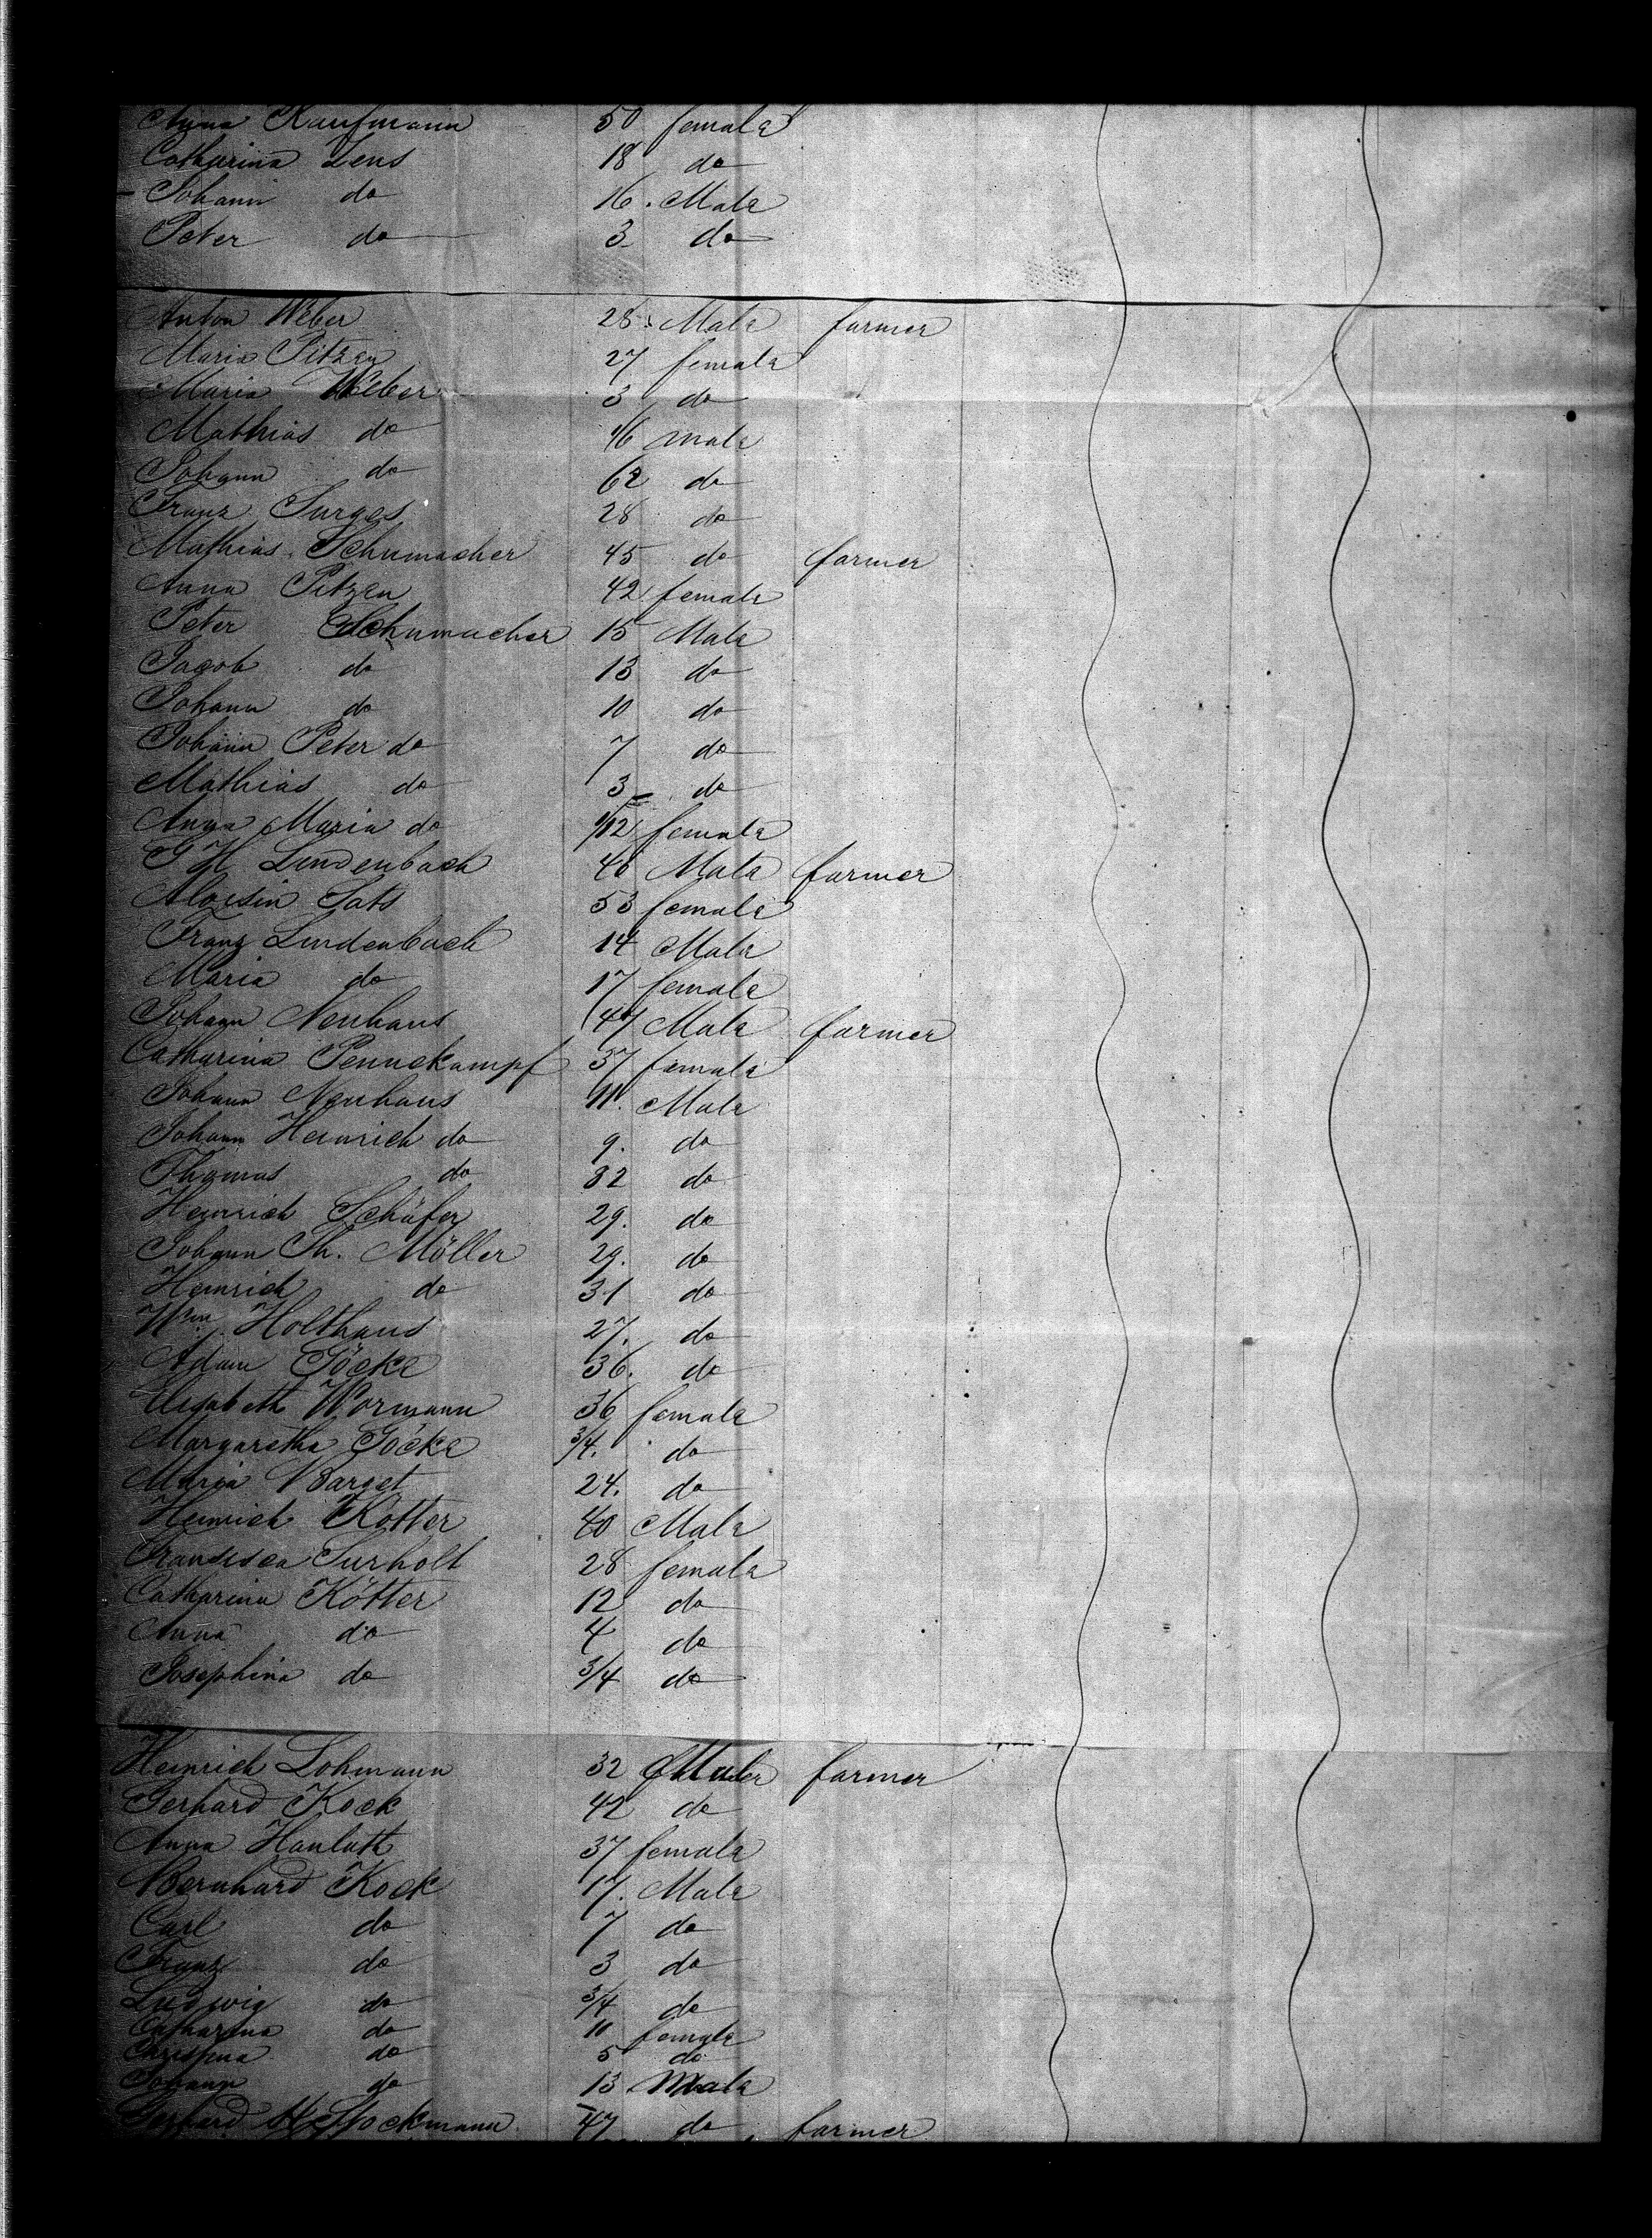 Anna Kaufmann 50 female
Catharina Lens 18 do
Johann do 16. Male
Peter do 3 do
Anton Weber 28. Male farmer
Maria Pitzen 27 female
Maria Weber 3 do
Mathias do male
Johann do 62 do
Franz Surges 28 do
Mathias Schumacher 45 do farmer
Anna Pitzen 42 female
Peter Schumacher 15 Male
Jacob do 13 do
Johann do 10 do
Johann Peter do 7 do
Mathias do 3 do
Anna Maria do female
Lindenbach 46 Male farmer
53 female
Franz Lindenbach 14 Male
Maria do 17 female
Johann Neuhaus 47 Male farmer
Catharina Pennekampf 37 female
Johann Neuhaus 11. Male
Johann Heinrich do 9. do
Thomas do 32 do
Heinrich Schäfer 29. do
Johann Th. Möller 29. do
Heinrich do 31 do
Wm Holthaus 27. do
Adam Göcke 36. do
Elisabeth Wormann 36 female
Margaretha Göcke 3/4. do
Maria Barget 24. do
Heinrich Kötter 40 Male
Francisca Surholt 28 female
Catharina Kötter 12 do
Anna do 4 do
Josephina do 3/4 do
Heinrich Lohmann 32 Male farmer
Gerhard Kock 42 do
Anna 37 female
Bernhard Kock 17. Male
Carl do 7 do
Franz do 3 do
Ludwig do 3/4 do
Catharina do 10 female
Christina do 5 do
Johann do 13 Male
Gerhard 47 do farmer